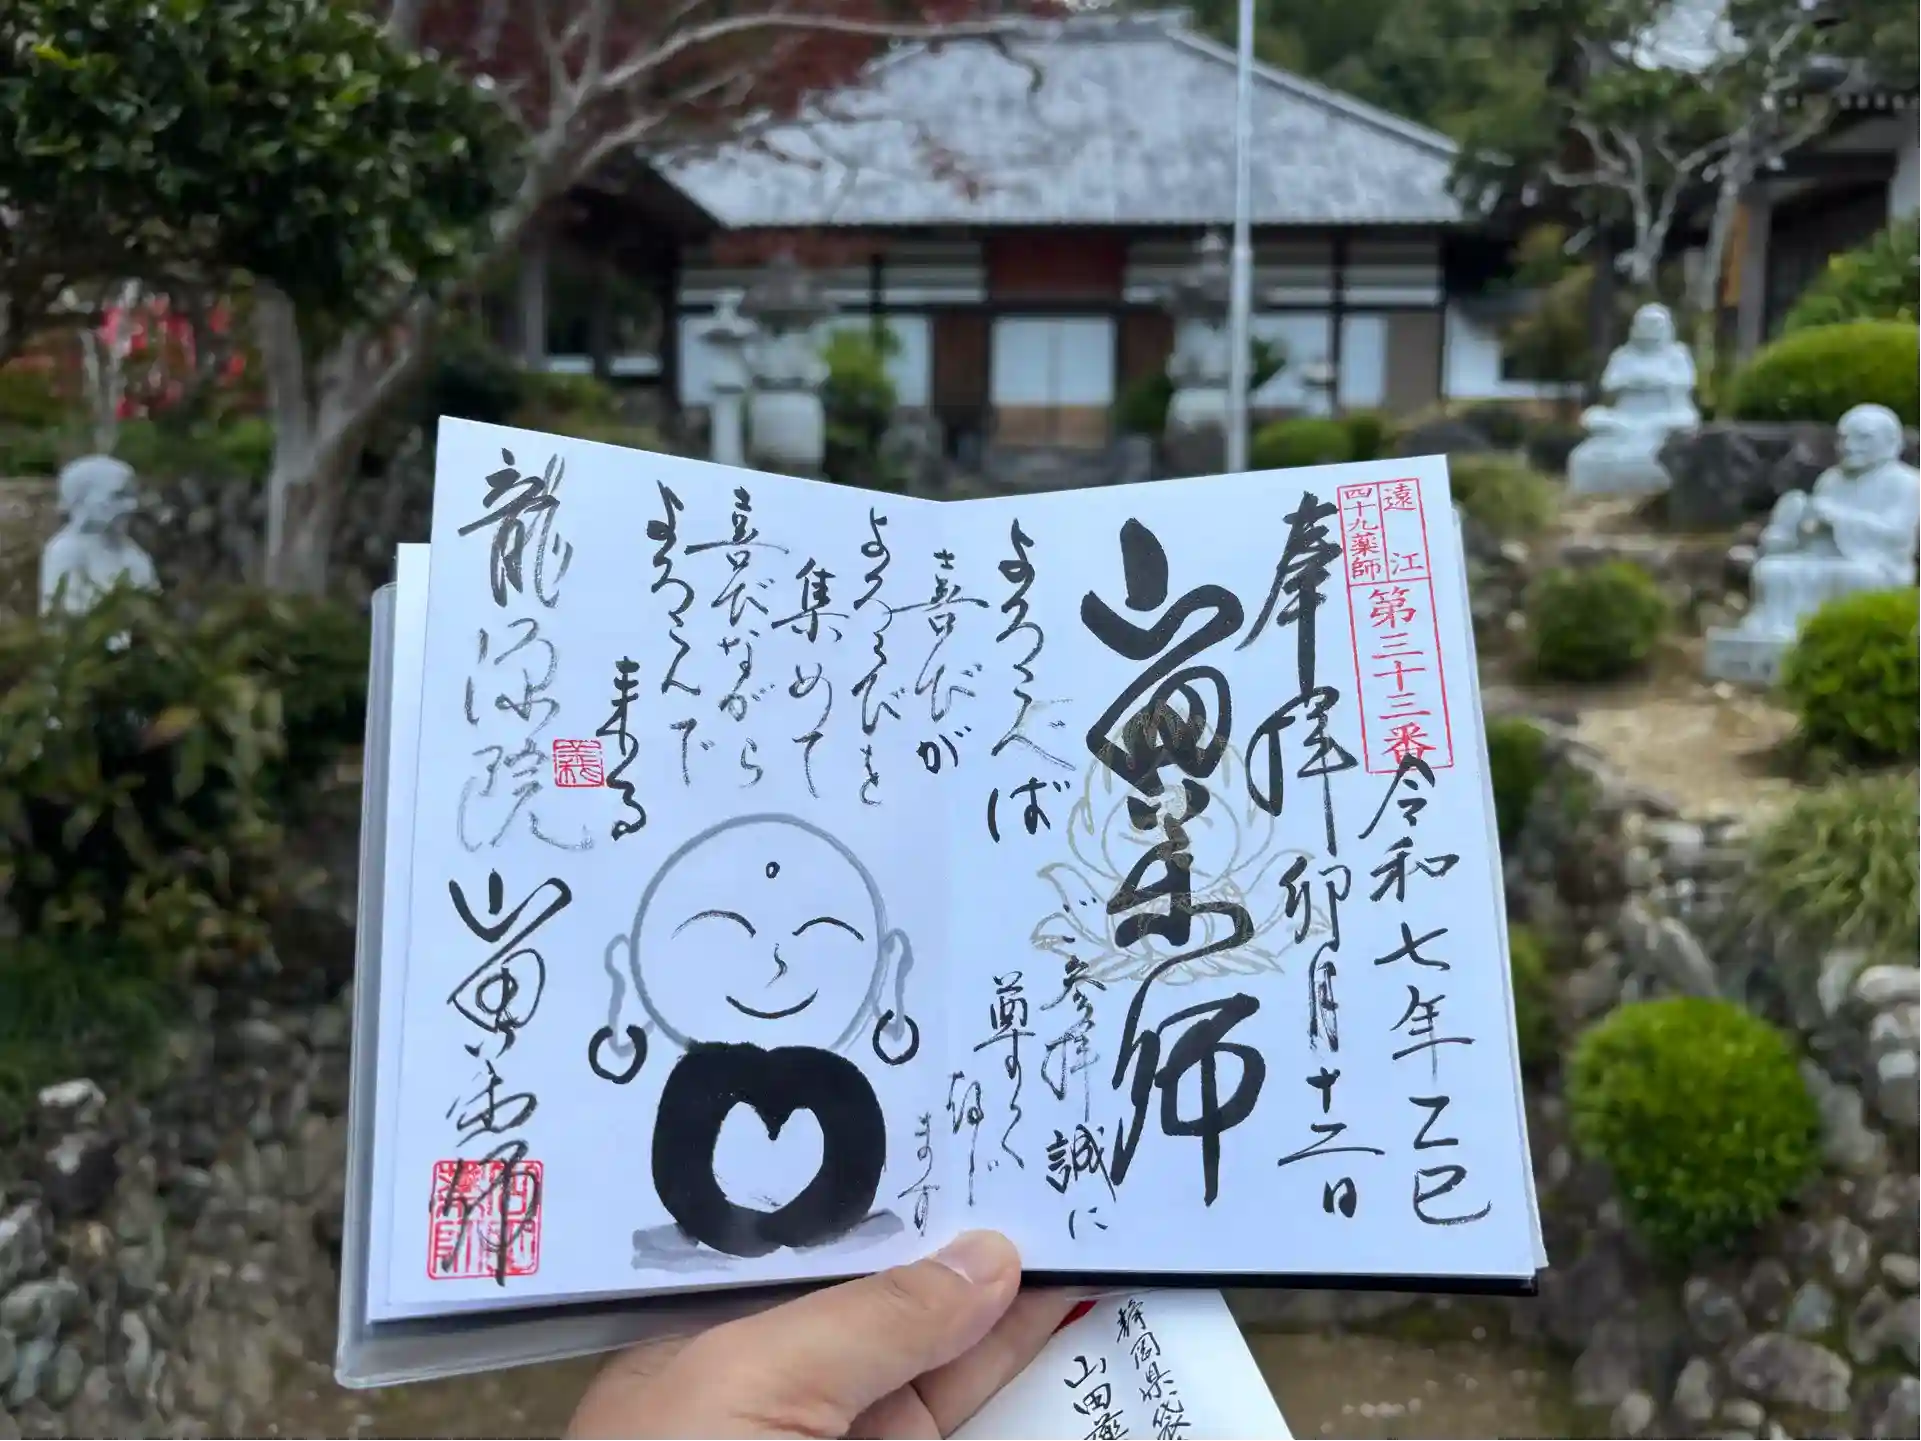 遠江
四十九薬師
第三十三番
令和七年乙巳
卯月十二日
奉拝
山田薬師
参拝誠に
尊すく
拝じ
ます
よろこべば
喜びが
よろこびを
集めて
喜びながら
よろこんで
来る
龍源院
山田薬師
静岡県袋
山田薬